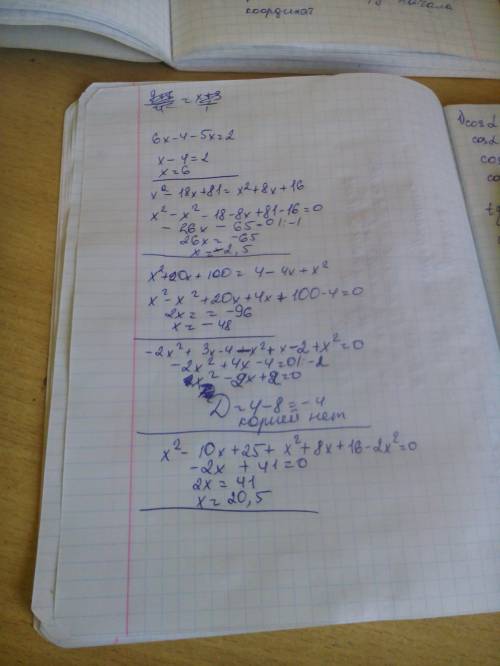 координат
6x-4-5x=2
x-4=2
x=6
x²-18x+81=x²+8x+16
x²-x²-18-8x+81-16=0
-26x-65=0|:-1
26x=-65
x=-2,5
x²+20x+100=4-4x+x²
x²-x²+20x+4x+100-4=0
2x==-96
x=-48
-2x²+3x-4-x²+x-2+x²=0
-2x²+4x-4=0|:-2
x²-2x+2=0
D=4-8=-4
корней нет
x²-10x+25+x²+8x+16-2x²=0
-2x+41=0
2x=41
x=20,5
cosα